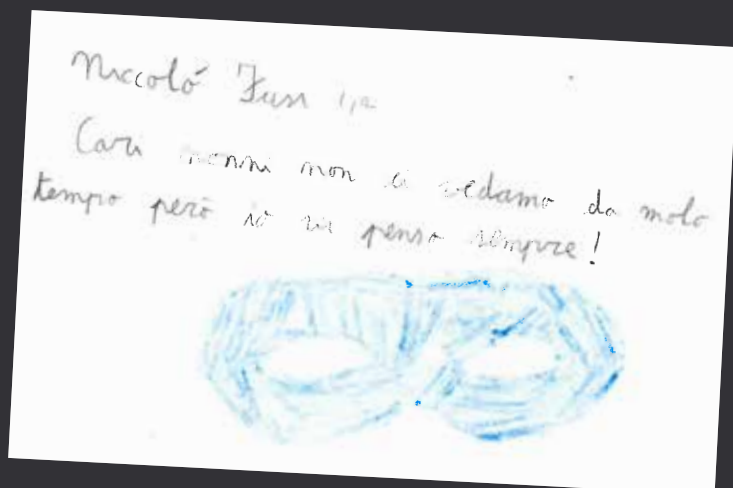 Niccoló Fusi
Cari nonni non ci vedamo da molo
tempo però io vi penso sempre!